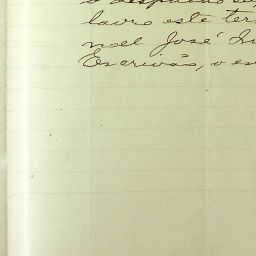 o despacho
lavro este ter
noel José
Escrivão, o es